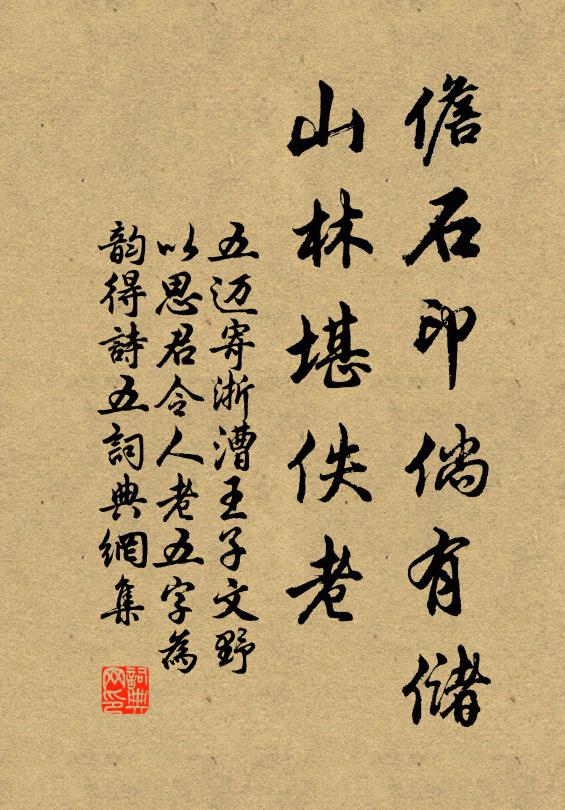 儋石印倘有儲
山林堪佚老
五迈寄浙漕王子文野
以思君令人老五字為
韵得詩五詞典網集
詞典
网印